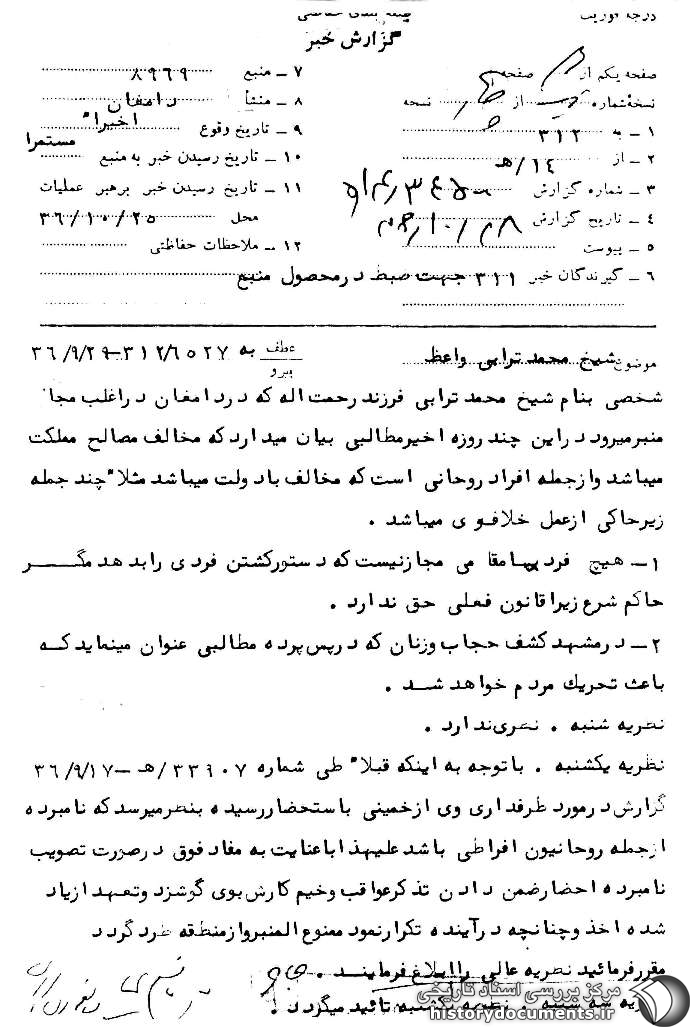 درجه فوریت
طبقه بندی حفاظتی
گزارش خبر
صفحه یکم از صفحه
نسخه شماره از نسخه
۱ – به ۳۱۲
۲ – از ۱٤/هـ
۳ – شماره گزارش
۴ – تاریخ گزارش
۵ – پیوست
۶ – گیرندگان خبر ۳۱۱ جهت ضبط در محصول منبع
۷ – منبع ۸۹۶۹
۸ – منشأ دامغان
۹ – تاریخ وقوع اخیرا"
مستمرا
۱۰ – تاریخ رسیدن خبر به منبع
۱۱ – تاریخ رسیدن خبر برهبر عملیات
محل ۳۶/۱۰/۲۵
۱۲ – ملاحظات حفاظتی
موضوع شیخ محمد ترابی واعظ عطف به ۳۱۲/۶۵۲۷-۳۶/۹/۲۹
پیرو
شخصی بنام شیخ محمد ترابی فرزند رحمت اله که در دامغان در اغلب مجا
منبر میرود در این چند روزه اخیر مطالبی بیان میدارد که مخالف مصالح مملکت
میباشد و از جمله افراد روحانی است که مخالف با دولت میباشد مثلا" چند جمله
زیر حاکی از عمل خلاف وی میباشد .
۱– هیچ فرد بهامقا می مجاز نیست که دستور کشتن فردی را بدهد مگر
حاکم شرع زیرا قانون فعلی حق ندارد .
۲– در مشهد کشف حجاب و زنان که در پس پرده مطالبی عنوان مینماید که
باعث تحریك مردم خواهد شد .
نظریه شنبه . نظری ندارد .
نظریه یکشنبه . با توجه به اینکه قبلا" طی شماره ۳۳۹۰۷/هـ–۳۶/۹/۱۷
گزارش در مورد طرفداری وی از خمینی با ستحضار رسیده بنظر میرسد که نامبرده
از جمله روحانیون افراطی باشد علیهذا با عنایت به مفاد فوق در صورت تصویب
نامبرده احضار ضمن دادن تذکر عواقب وخیم کارش بوی گوشزد و تعهد ازیاد
شده اخذ و چنانچه در آینده تکرار نمود ممنوع المنبر و از منطقه طرد گردد
مقرر فرمائید نظریه عالی را ابلاغ فرمایند .
نظریه سه شنبه . نظریه یکشنبه تائید میگردد .
مرکز بررسی اسناد تاریخی
historydocuments.ir